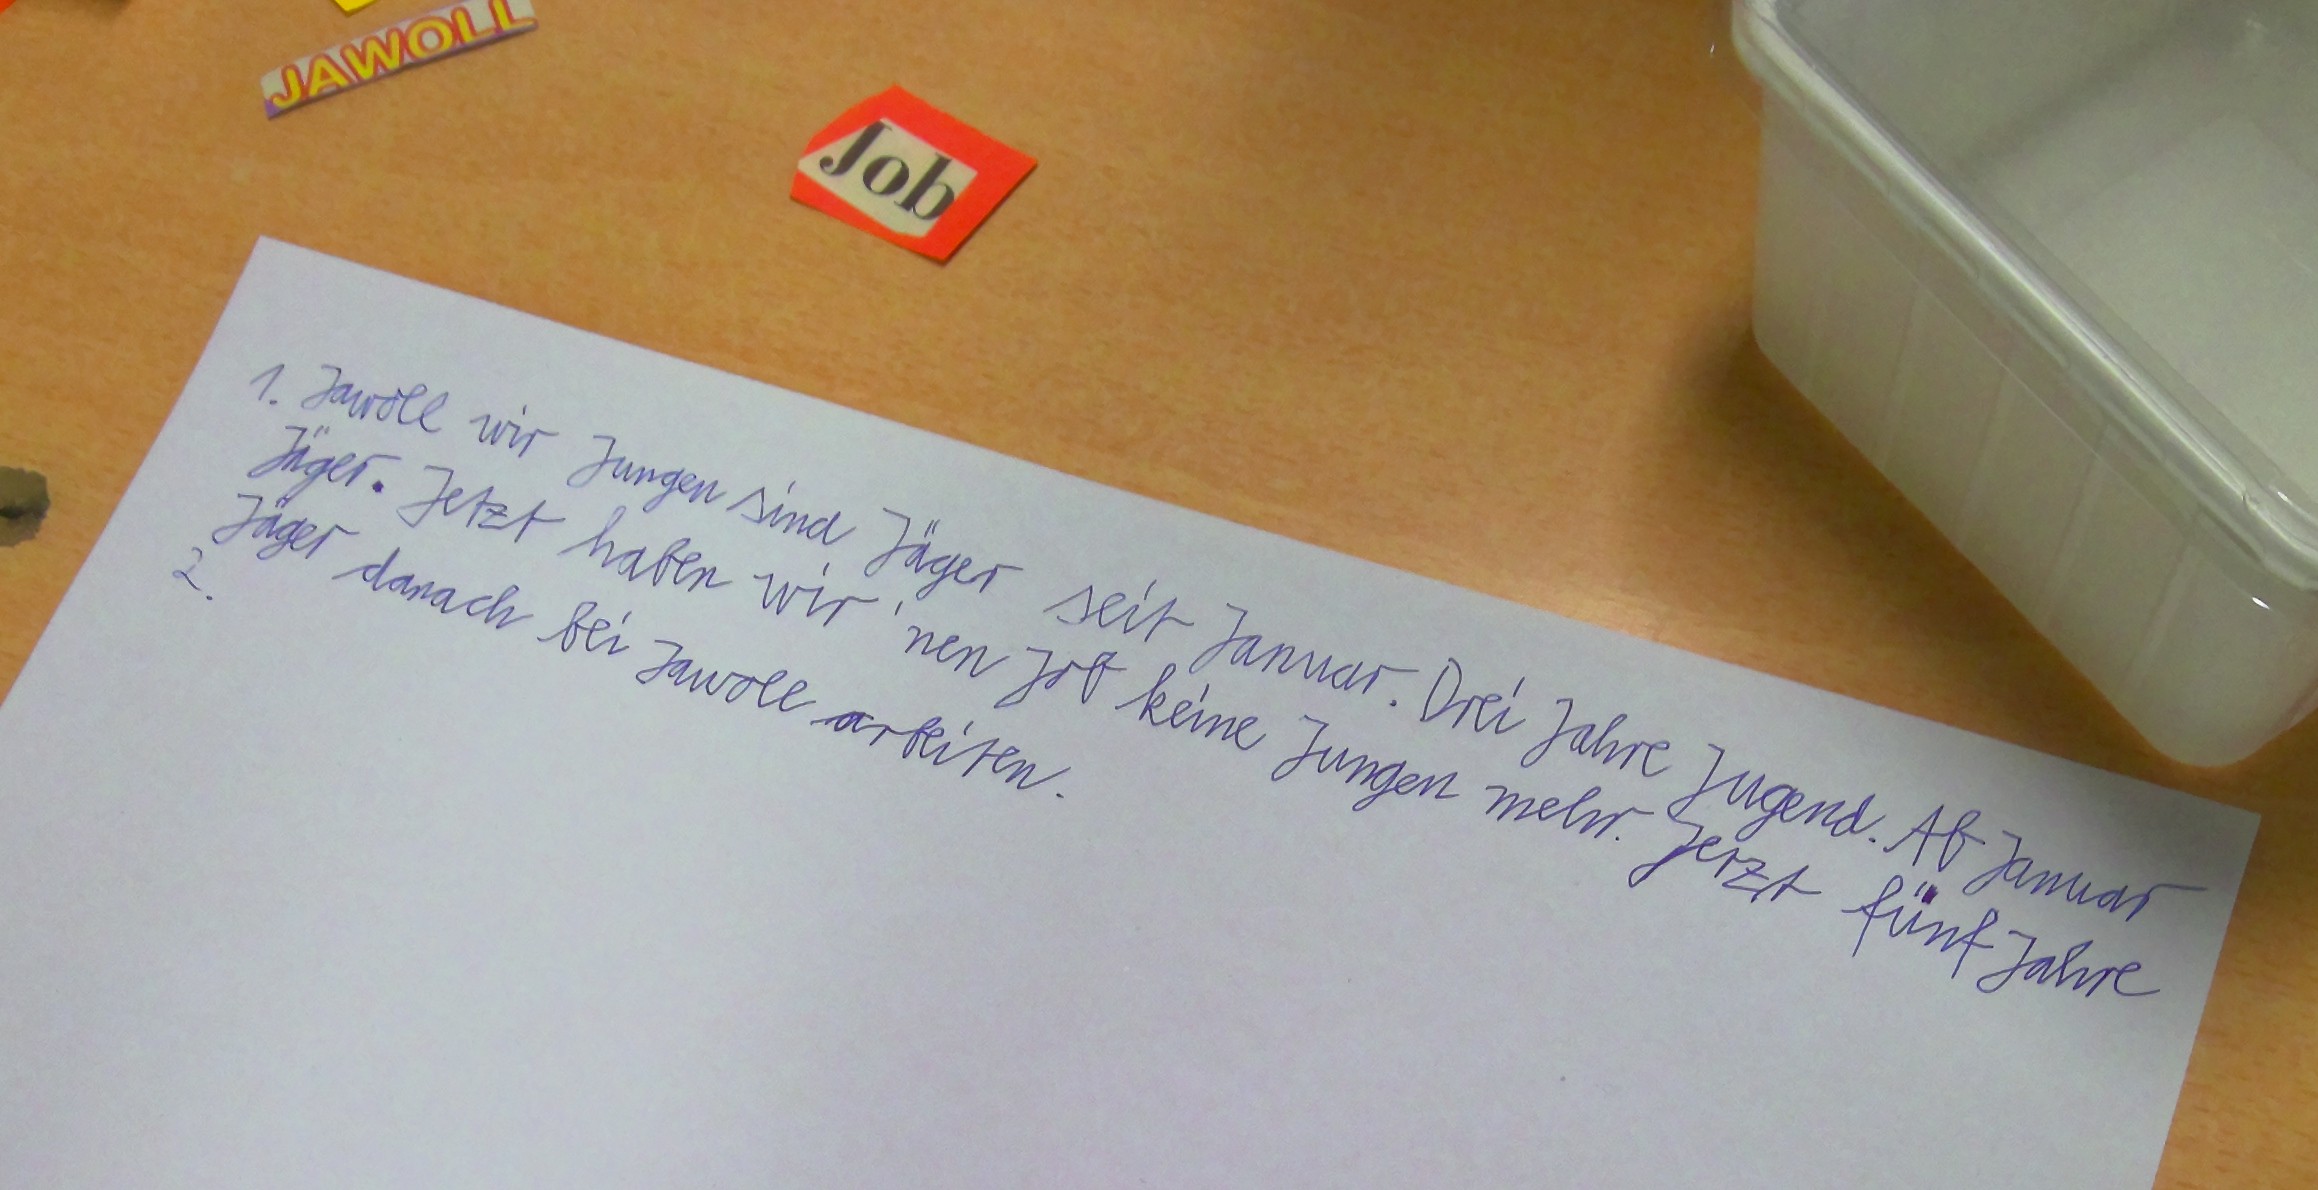 JAWOLL
Job
1. Jawoll wir Jungen sind Jäger seit Januar. Drei Jahre Jugend. Ab Januar
Jäger. Jetzt haben wir 'nen Job keine Jungen mehr. Jetzt fünf Jahre
Jäger danach bei Jawoll arbeiten.
2.